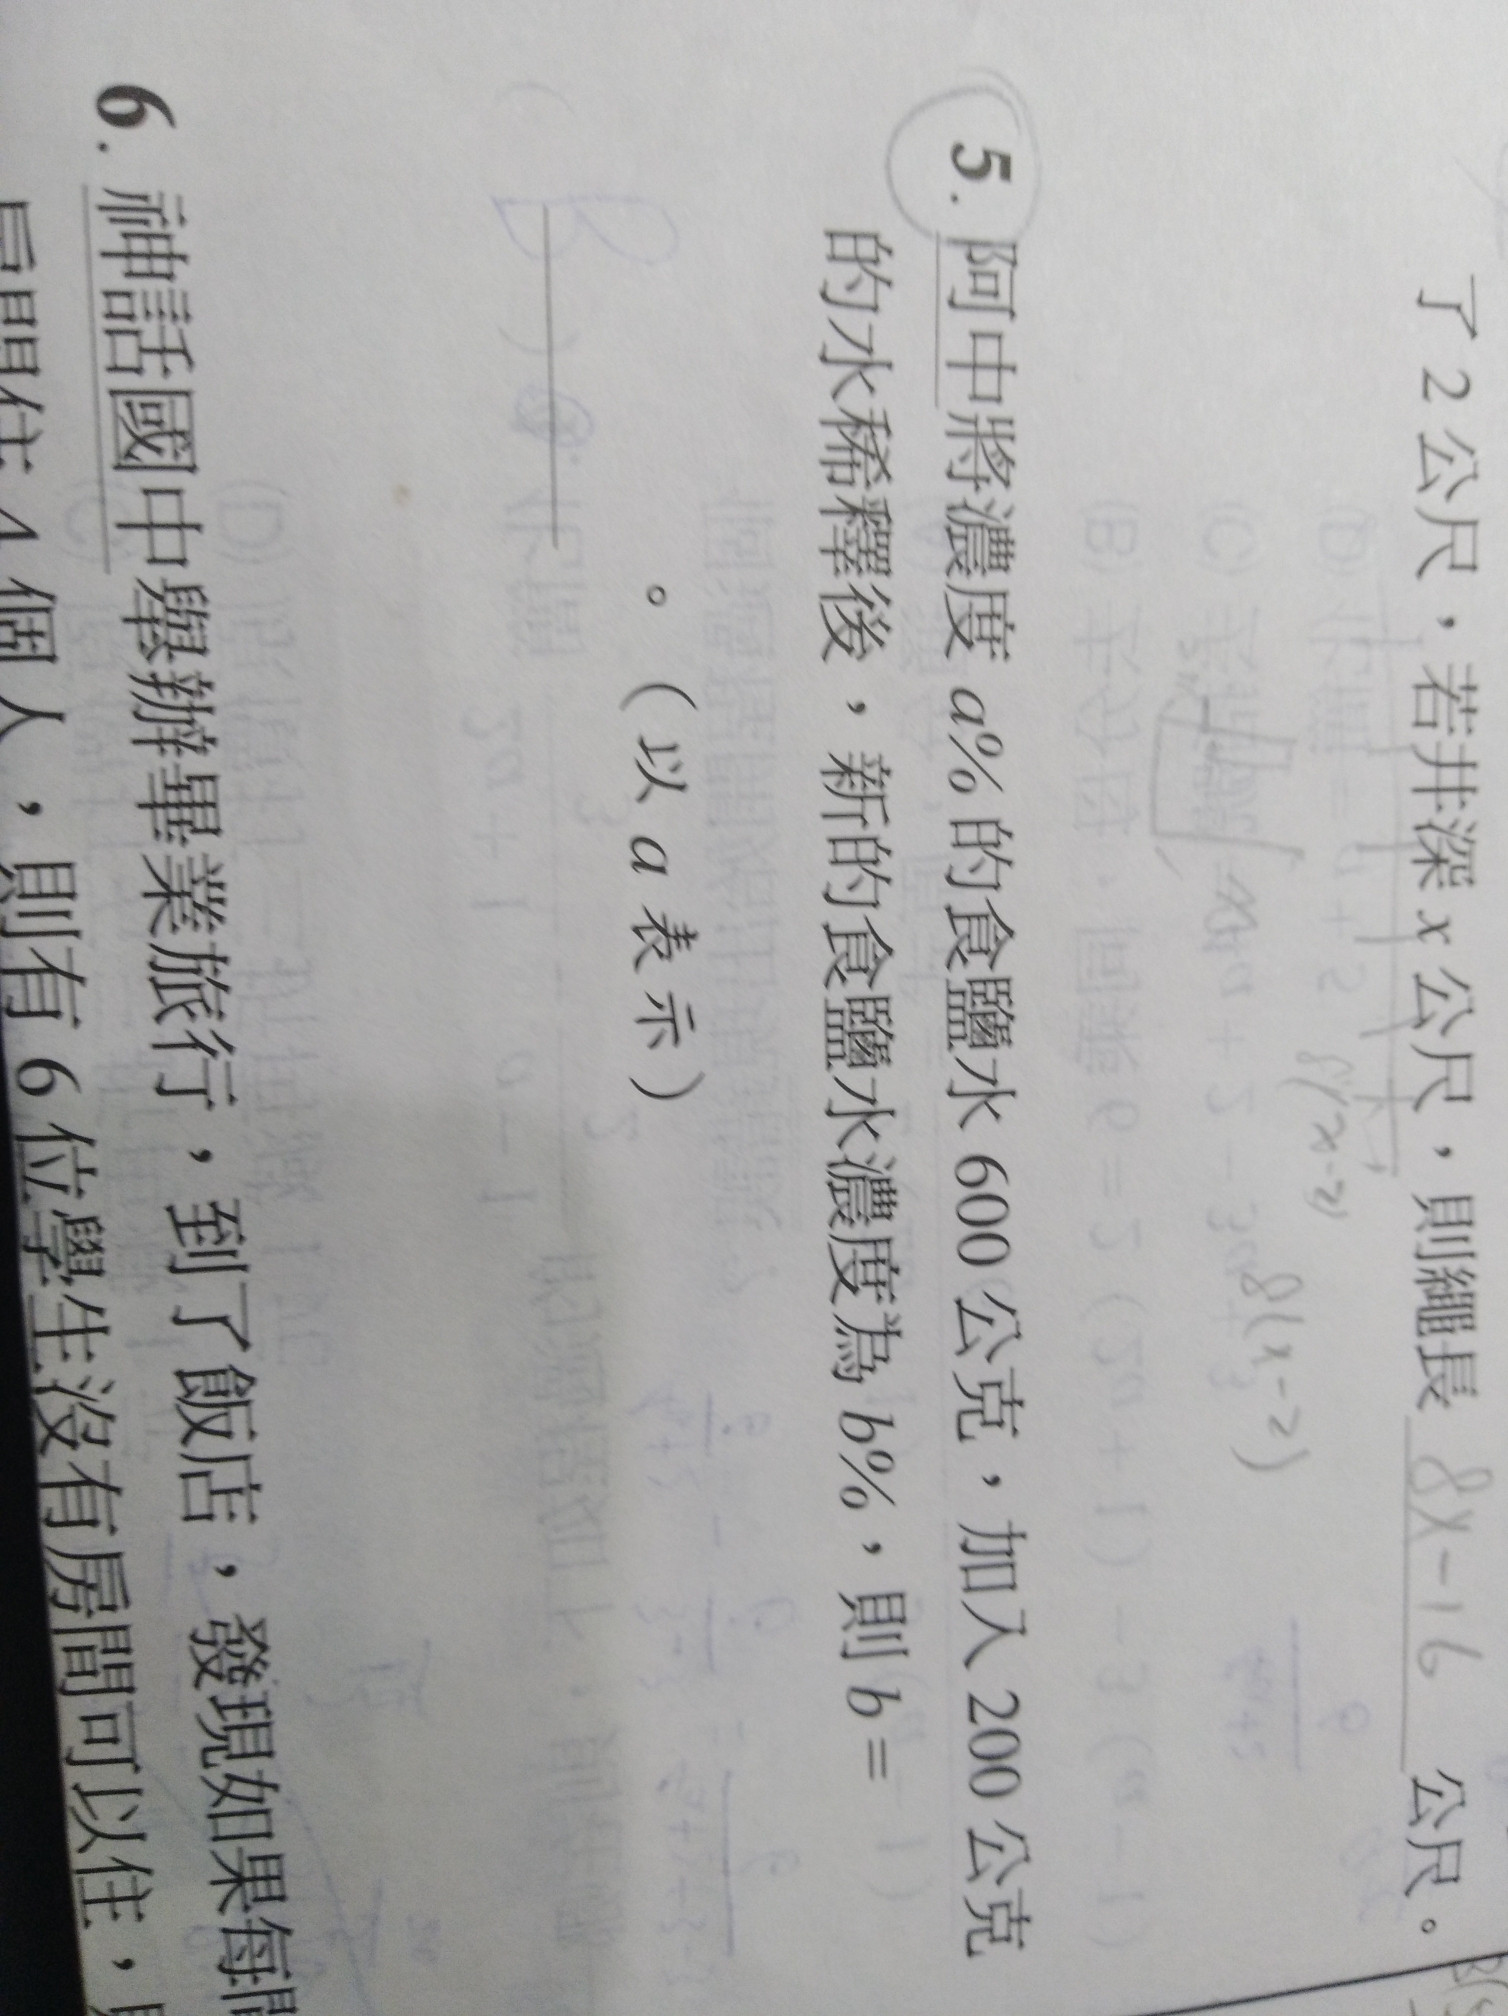 了 2 公尺，若井深 x 公尺，則繩長 8x-16 公尺。
8(x-2)
8(x-2)
5. 阿中將濃度 a% 的食鹽水 600 公克，加入 200 公克
的水稀釋後，新的食鹽水濃度為 b%，則 b =
。（以 a 表示）
6. 神話國中舉辦畢業旅行，到了飯店，發現如果每間
房間住 4 個人，則有 6 位學生沒有房間可以住，